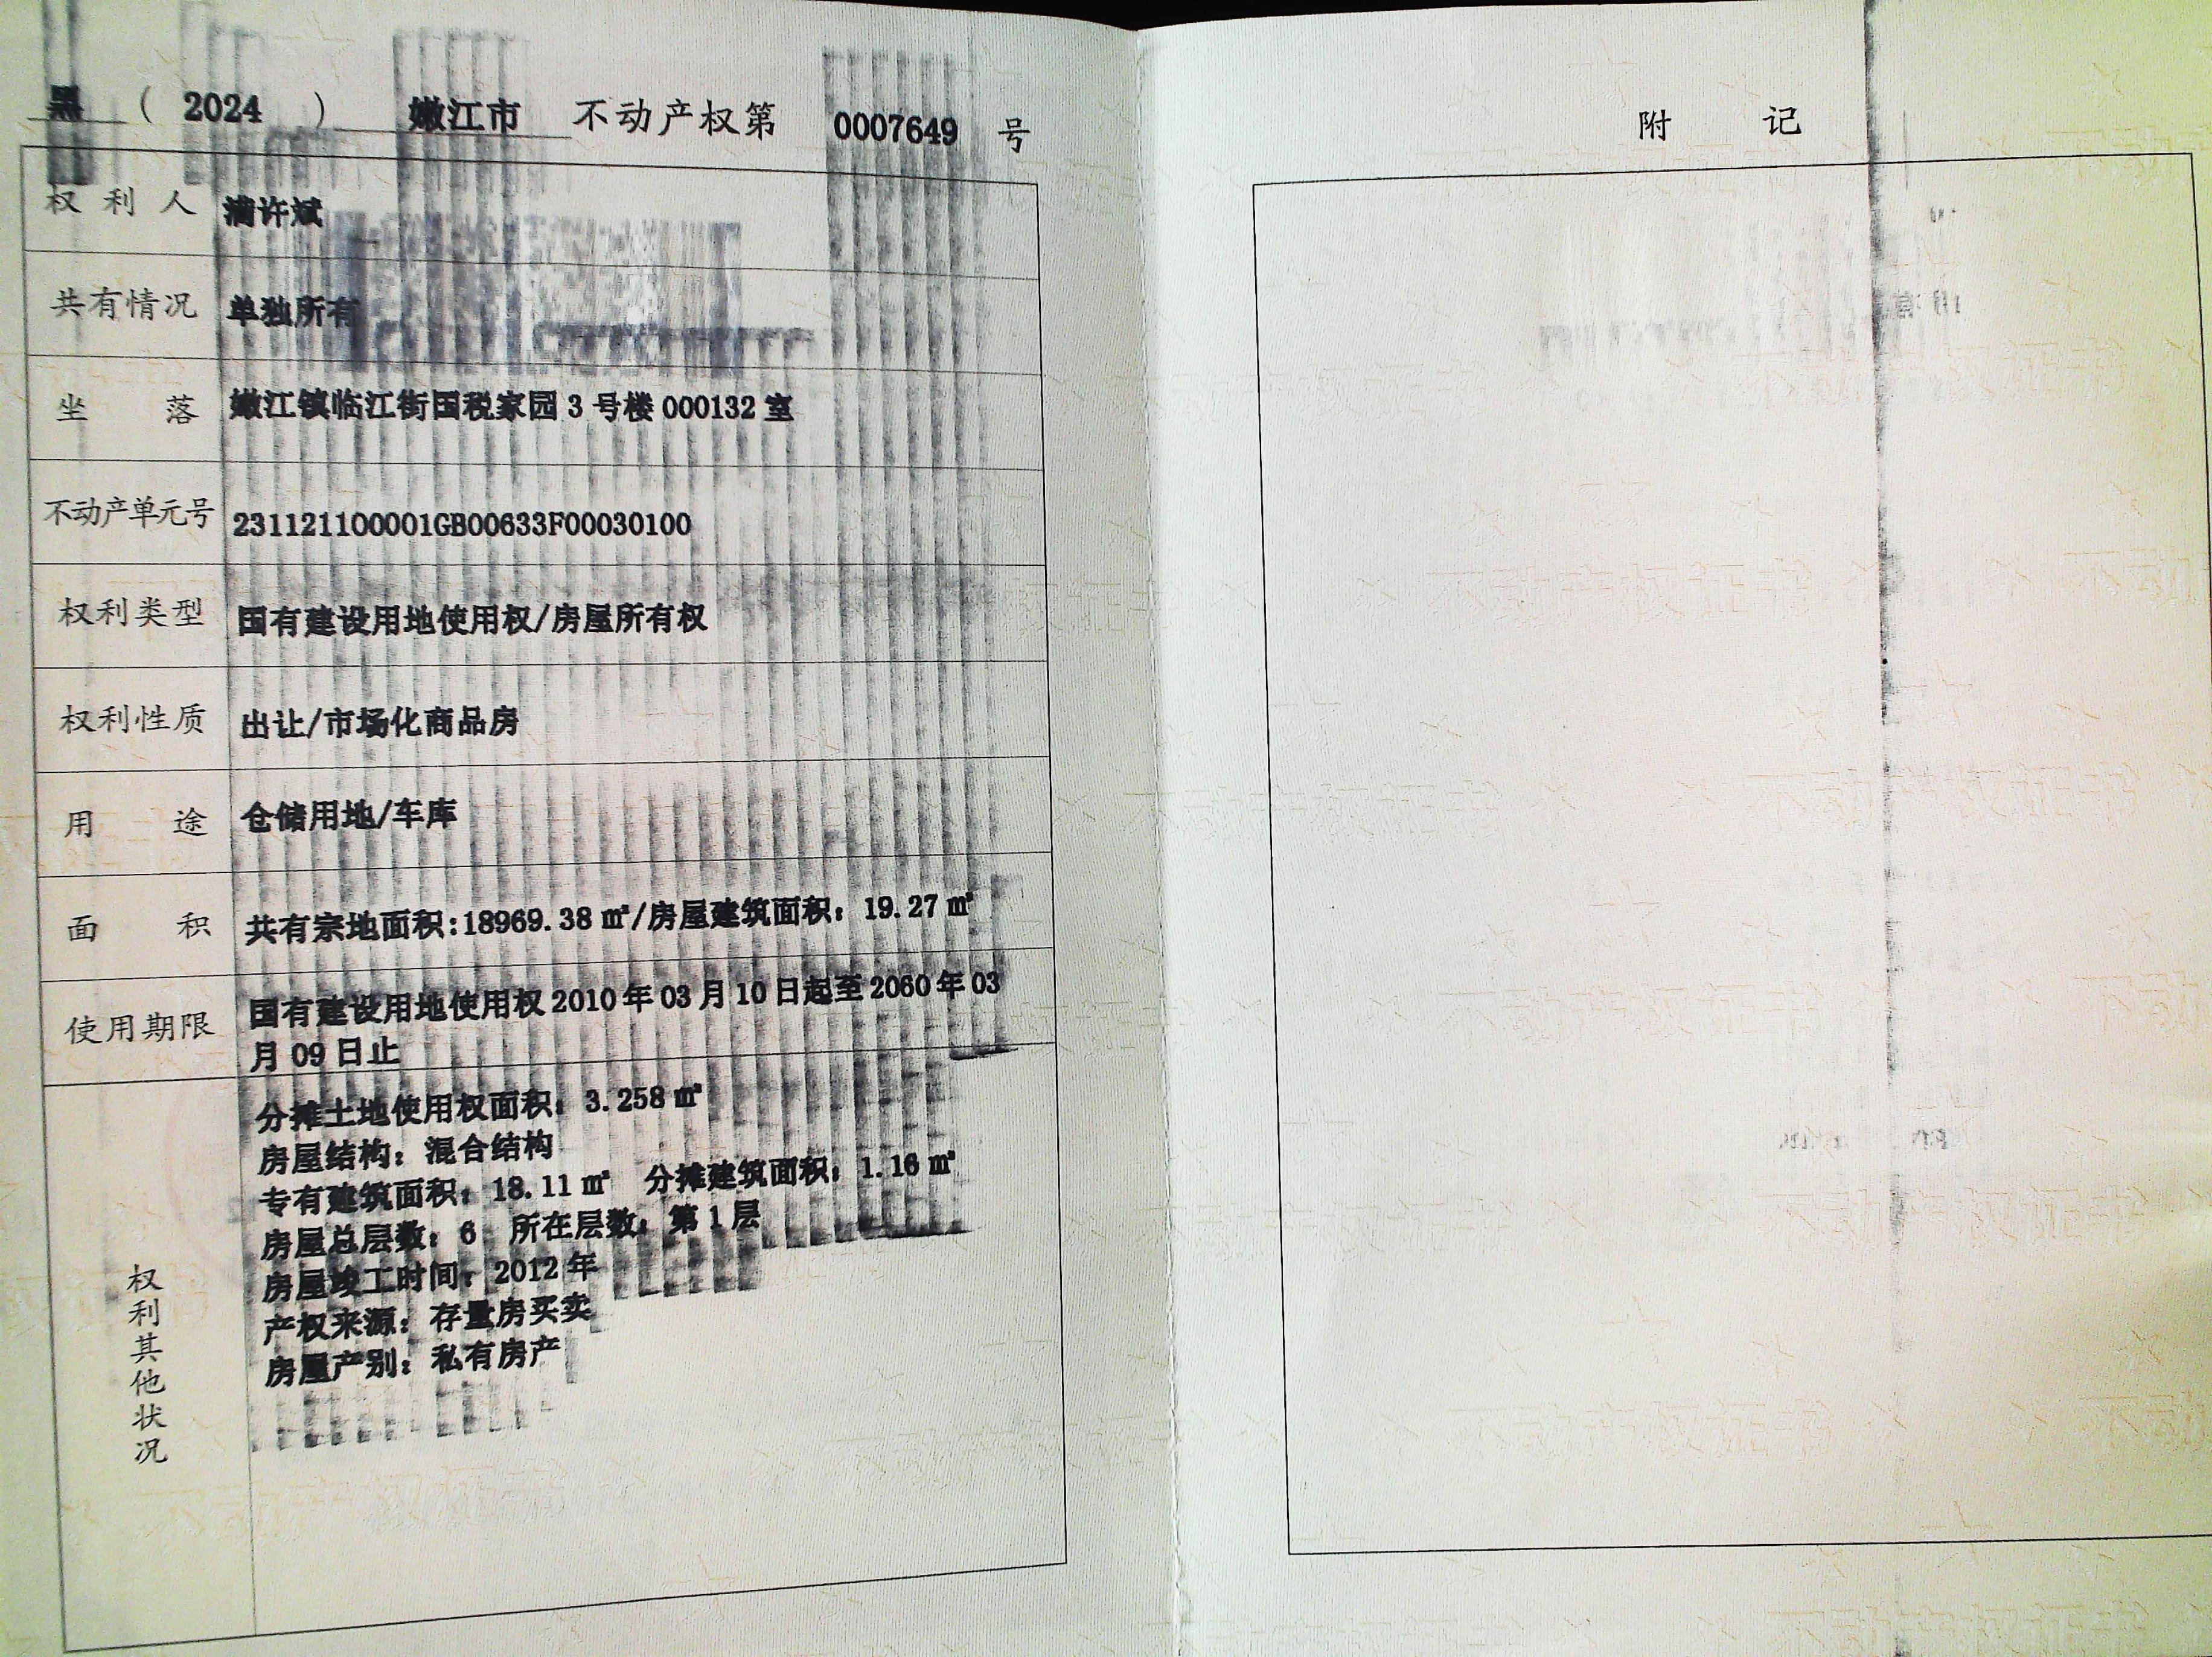 黑 ( 2024 ) 嫩江市 不动产权第 0007649 号
权利人 许斌
共有情况 单独所有
坐落 嫩江镇临江街国税家园 3 号楼 000132 室
不动产单元号 231121100001GB00633F00030100
权利类型 国有建设用地使用权/房屋所有权
权利性质 出让/市场化商品房
用途 仓储用地/车库
面积 共有宗地面积:18969.38 ㎡/房屋建筑面积：19.27 ㎡
使用期限 国有建设用地使用权 2010 年 03 月 10 日起至 2060 年 03
月 09 日止
权利其他状况
分摊土地使用权面积：3.258 ㎡
房屋结构：混合结构
专有建筑面积：18.11 ㎡ 分摊建筑面积：1.16 ㎡
房屋总层数：6 所在层数：第 1 层
房屋竣工时间：2012 年
产权来源：存量房买卖
房屋产别：私有房产
附记